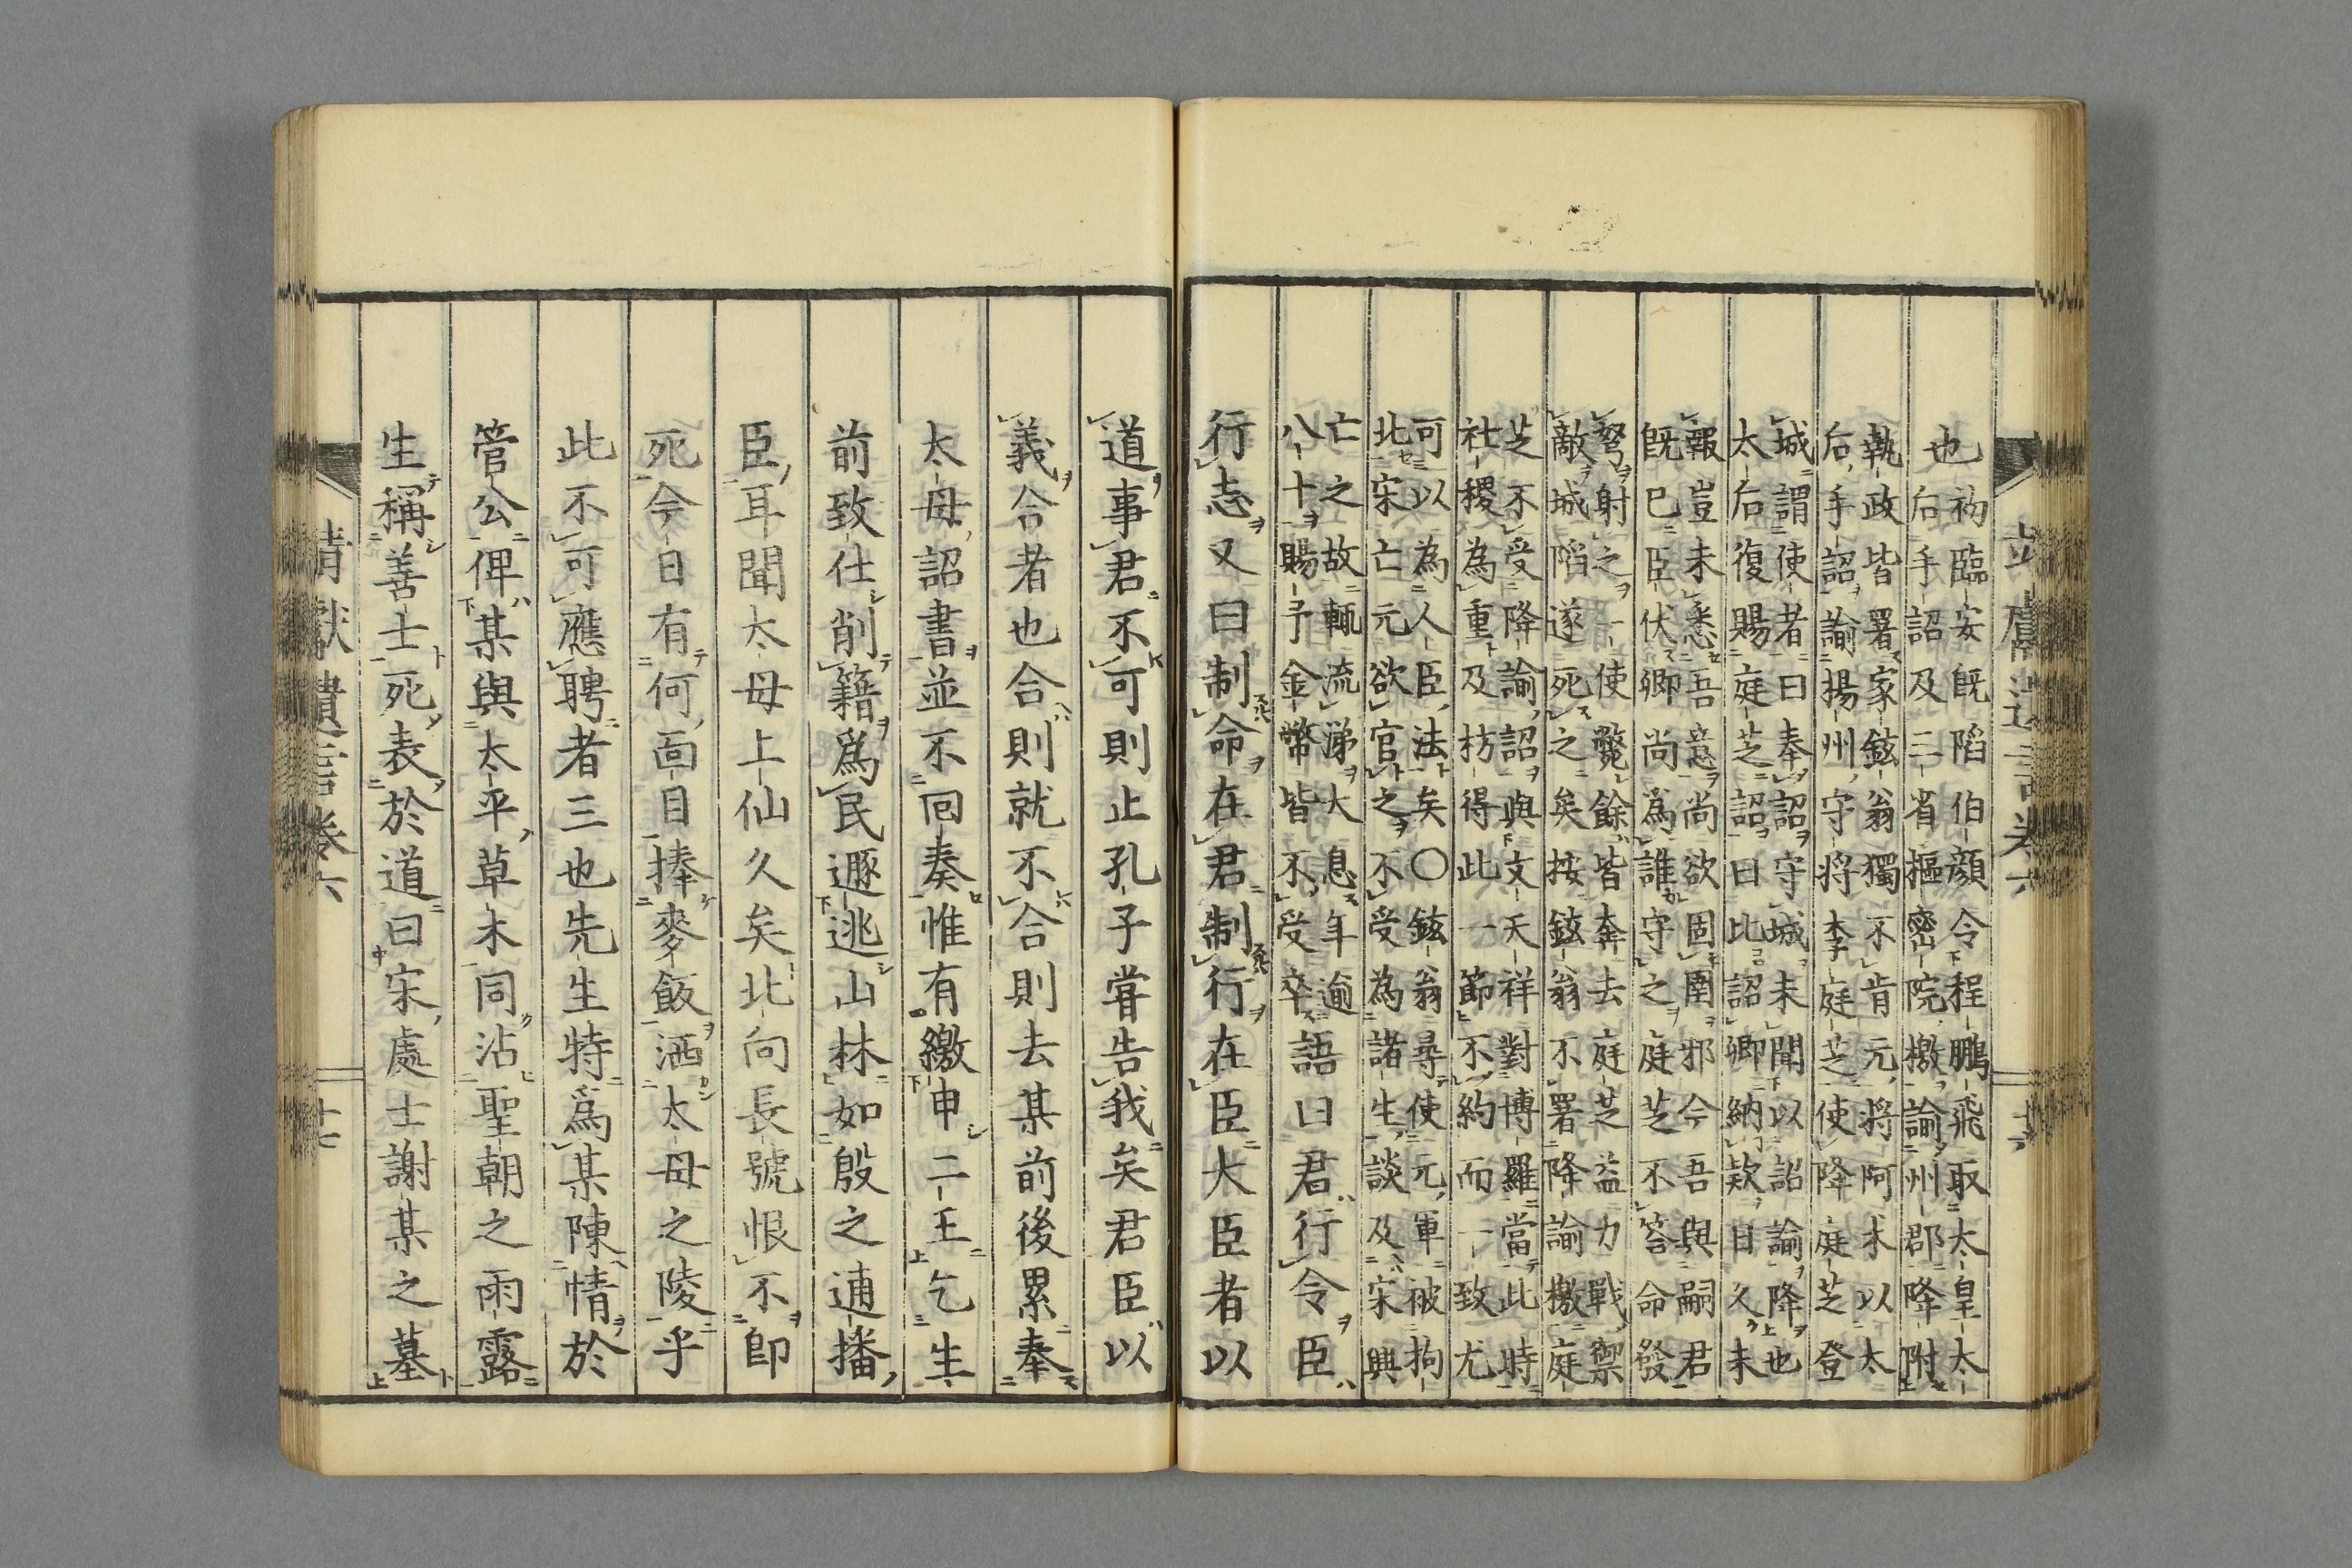 也初臨安既陷伯顔令程鵬飛取太皇太
后手詔及三省樞密院檄諭州郡降附
執政皆署家鉉翁獨不肯元将阿朮以太
后手詔諭揚州守将李庭芝使降庭芝登
城謂使者曰奉詔守城未聞以詔諭降也
太后復賜庭芝詔曰比詔卿納款日久未
報豈未悉吾意尚欲固圉邪今吾與嗣君
既已臣伏卿尚爲誰守之庭芝不答命發
弩射之一使斃餘皆奔去庭芝益力戰禦
敵城陷遂死之矣按鉉翁不署降諭檄庭
芝不受降諭詔與文天祥對博羅當此時
社稷為重及枋得此一節不約而一致尤
可以為人臣法矣〇鉉翁尋使元軍被拘
北宋亡元欲官之不受為諸生談及宋興
亡之故輒流涕大息年逾
八十賜予金幣皆不受卒語曰君行令臣
行志又曰制命在君制行在臣大臣者以
道事君不可則止孔子嘗告我矣君臣以
義合者也合則就不合則去某前後累奉
太母詔書並不回奏惟有繳申二王乞生
前致仕削籍爲民遯逃山林如殷之逋播
臣耳聞太母上仙久矣北向長號恨不即
死今日有何面目捧麥飯洒太母之陵乎
此不可應聘者三也先生特爲某陳情於
管公俾某與太平草木同沾聖朝之雨露
生稱善士死表於道曰宋處士謝某之墓
靖獻遺言卷六
十七